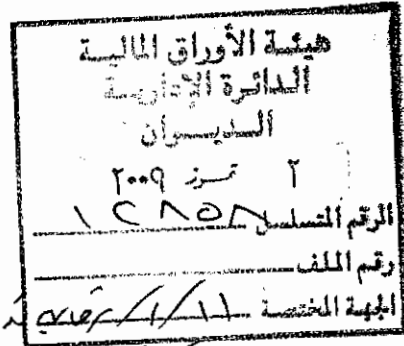 هيئة الأوراق المالية
الدائرة الإدارية
الديوان
٢ تموز ٢٠٠٩
الرقم المتسلسل ١٢٨٥٨
رقم الملف
الجهة المختصة ١١/١/